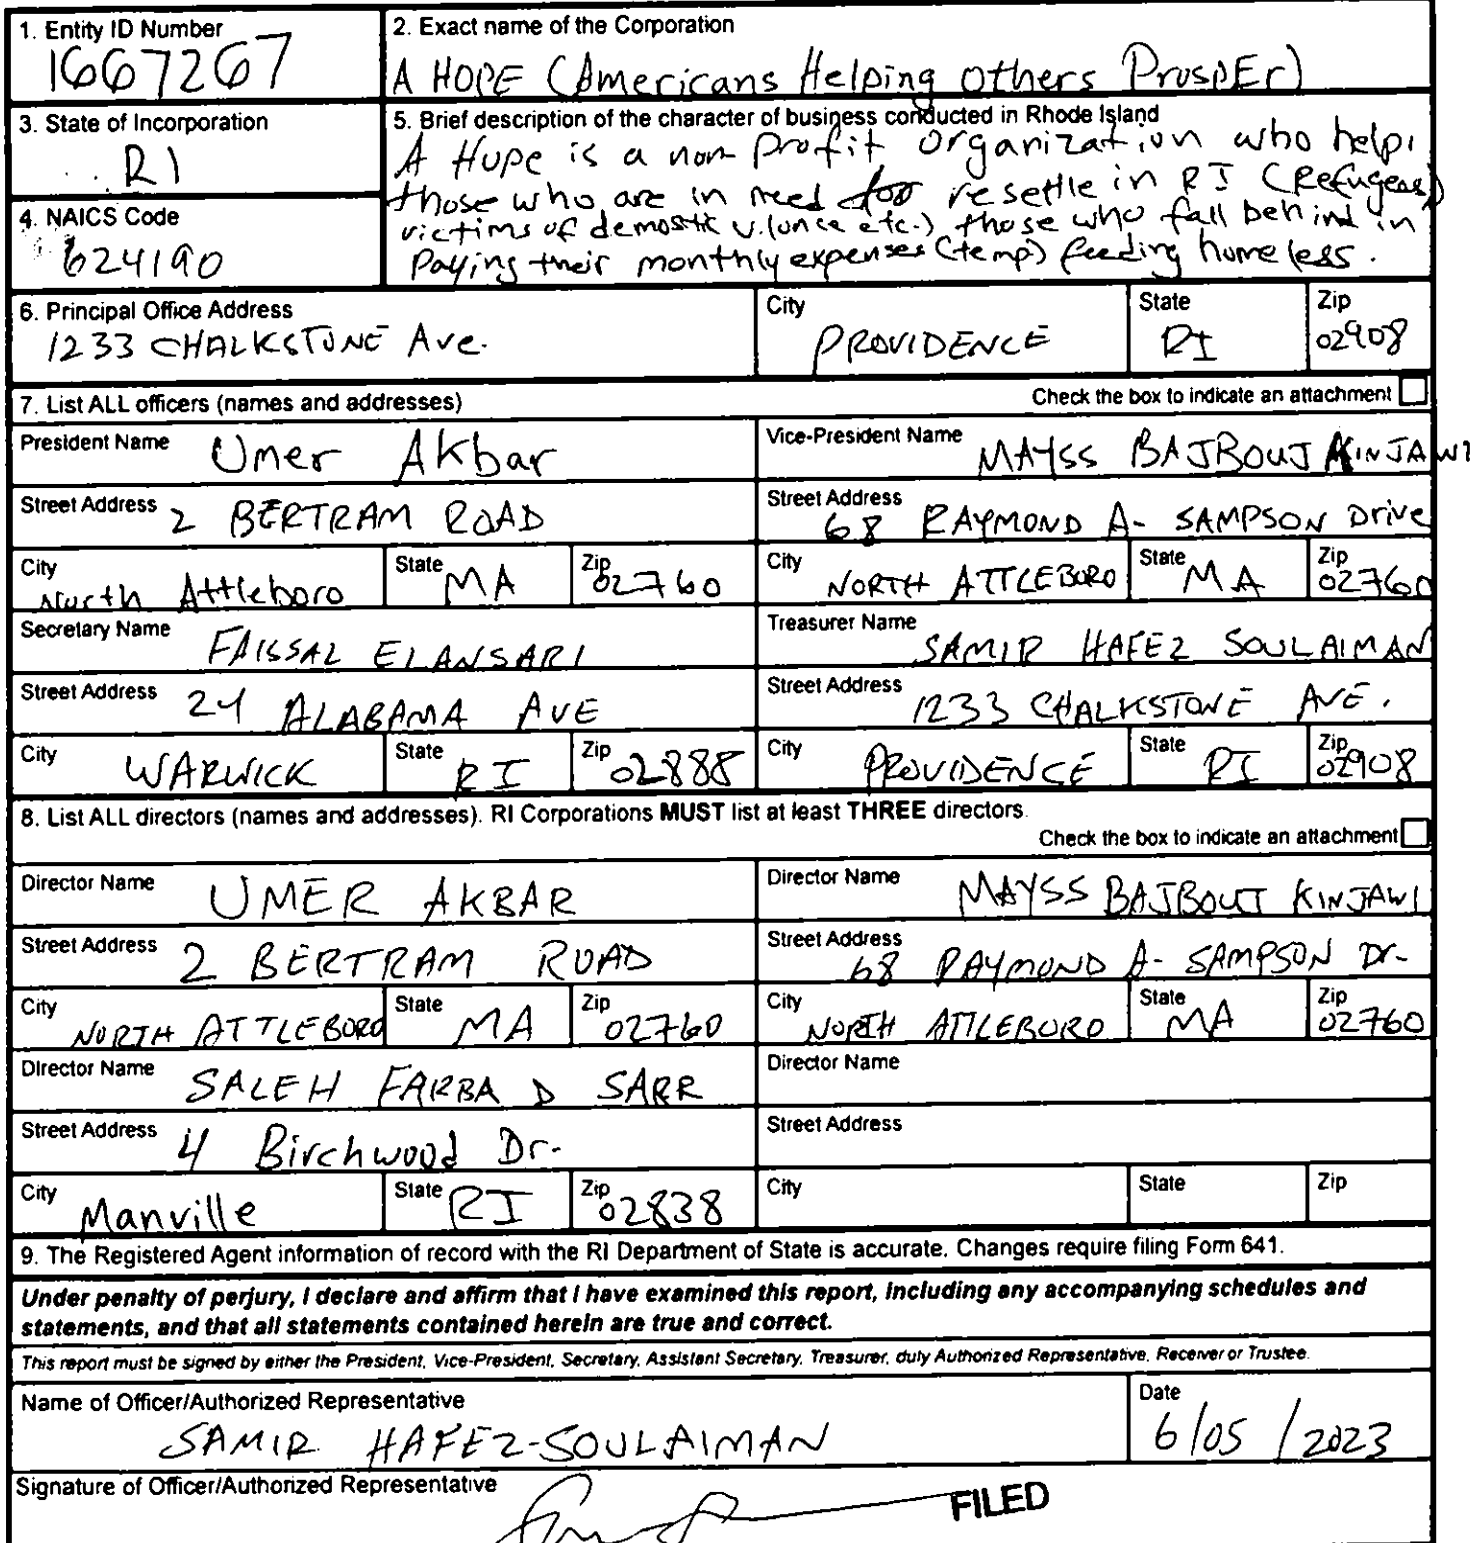 1. Entity ID Number
1667267
2. Exact name of the Corporation
A HOPE (Americans Helping Others ProspEr)
3. State of Incorporation
RI
4. NAICS Code
624190
5. Brief description of the character of business conducted in Rhode Island
A Hope is a non profit organization who helps
those who are in need resettle in RI (Refugees)
victims of demostic etc.) those who fall behind in
Paying their monthly expenses (temp) feeding homeless.
6. Principal Office Address
1233 CHALKSTONE Ave.
City
PROVIDENCE
State
RI
Zip
02908
7. List ALL officers (names and addresses)
Check the box to indicate an attachment
President Name Umer Akbar
Vice-President Name MAYSS BAJBOUJ KINJAWI
Street Address 2 BERTRAM ROAD
Street Address 68 RAYMOND A- SAMPSON Drive
City North Attleboro
State MA
Zip 02760
City NORTH ATTLEBORO
State MA
Zip 02760
Secretary Name FAISSAL ELANSARI
Treasurer Name SAMIR HAFEZ SOULAIMAN
Street Address 24 ALABAMA AVE
Street Address 1233 CHALKSTONE AVE.
City WARWICK
State RI
Zip 02888
City PROVIDENCE
State RI
Zip 02908
8. List ALL directors (names and addresses). RI Corporations MUST list at least THREE directors.
Check the box to indicate an attachment
Director Name UMER AKBAR
Director Name MAYSS BAJBOUJ KINJAWI
Street Address 2 BERTRAM ROAD
Street Address 68 RAYMOND A- SAMPSON Dr-
City NORTH ATTLEBORO
State MA
Zip 02760
City NORTH ATTLEBORO
State MA
Zip 02760
Director Name SALEH FARBA D SARR
Director Name
Street Address 4 Birchwood Dr-
Street Address
City Manville
State RI
Zip 02838
City
State
Zip
9. The Registered Agent information of record with the RI Department of State is accurate. Changes require filing Form 641.
Under penalty of perjury, I declare and affirm that I have examined this report, including any accompanying schedules and
statements, and that all statements contained herein are true and correct.
This report must be signed by either the President, Vice-President, Secretary, Assistant Secretary, Treasurer, duly Authorized Representative, Receiver or Trustee.
Name of Officer/Authorized Representative
SAMIR HAFEZ-SOULAIMAN
Date
6/05/2023
Signature of Officer/Authorized Representative
FILED